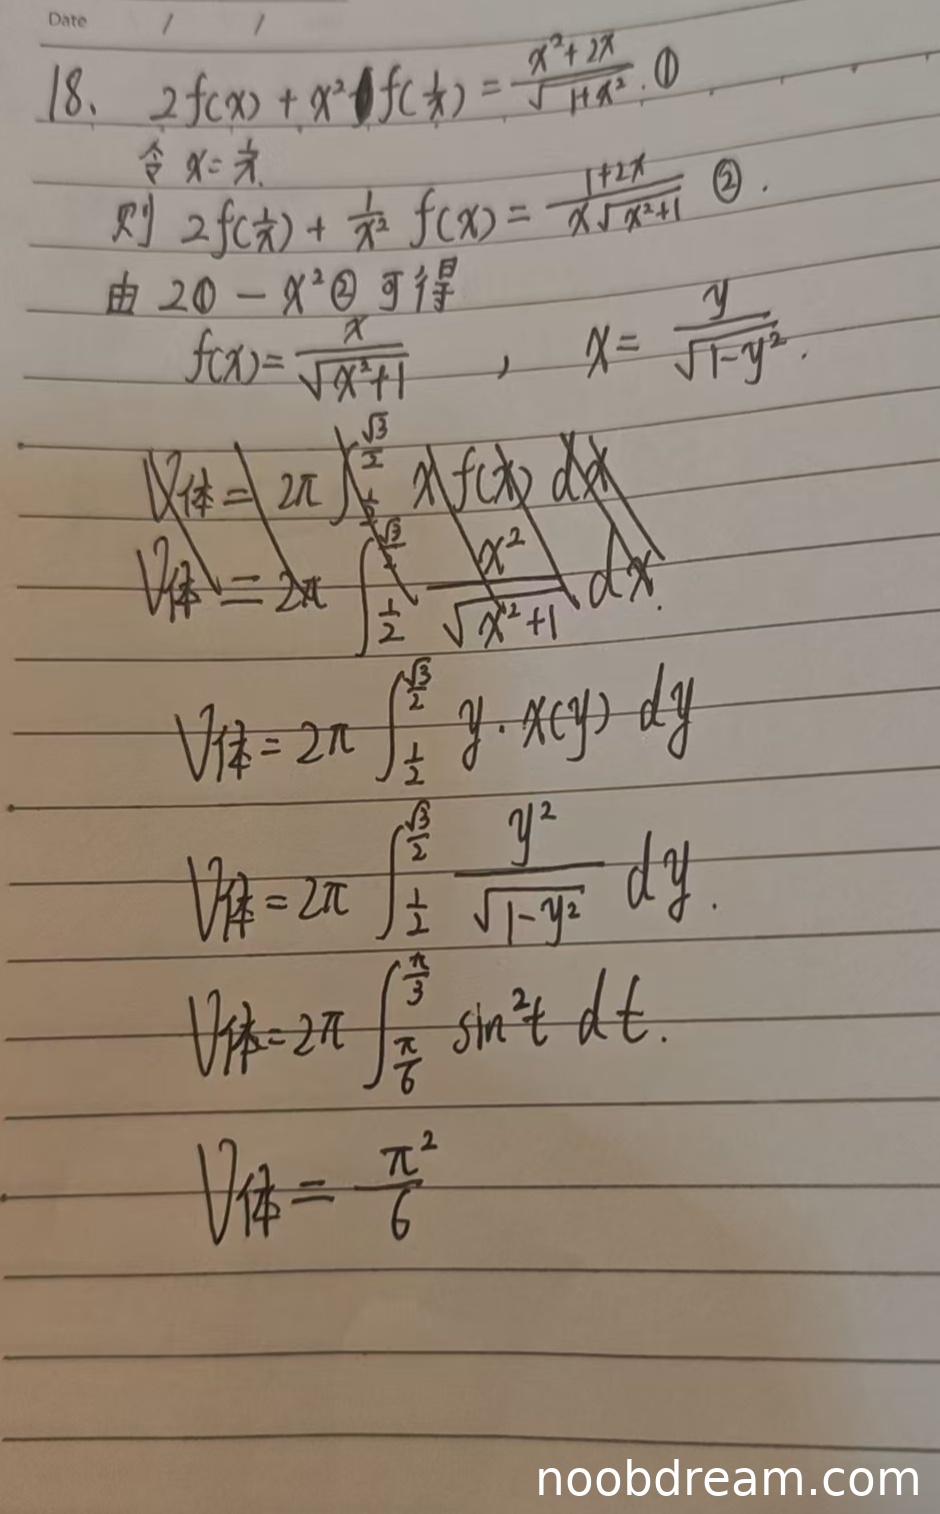 Date / /
18. 2f(x) + x² f(1/x) = (x²+2x)/√(1+x²) . ①
令 x = 1/x.
则 2f(1/x) + 1/x² f(x) = (1+2x)/(x√(x²+1)) ② .
由 2① - x²② 可得
f(x) = x/√(x²+1) , x = y/√(1-y²) .
V体 = 2π ∫_{1/2}^{√3/2} x f(x) dx
V体 = 2π ∫_{1/2}^{√3/2} x²/√(x²+1) dx.
V体 = 2π ∫_{1/2}^{√3/2} y · x(y) dy
V体 = 2π ∫_{1/2}^{√3/2} y²/√(1-y²) dy .
V体 = 2π ∫_{π/6}^{π/3} sin²t dt .
V体 = π²/6
noobdream.com